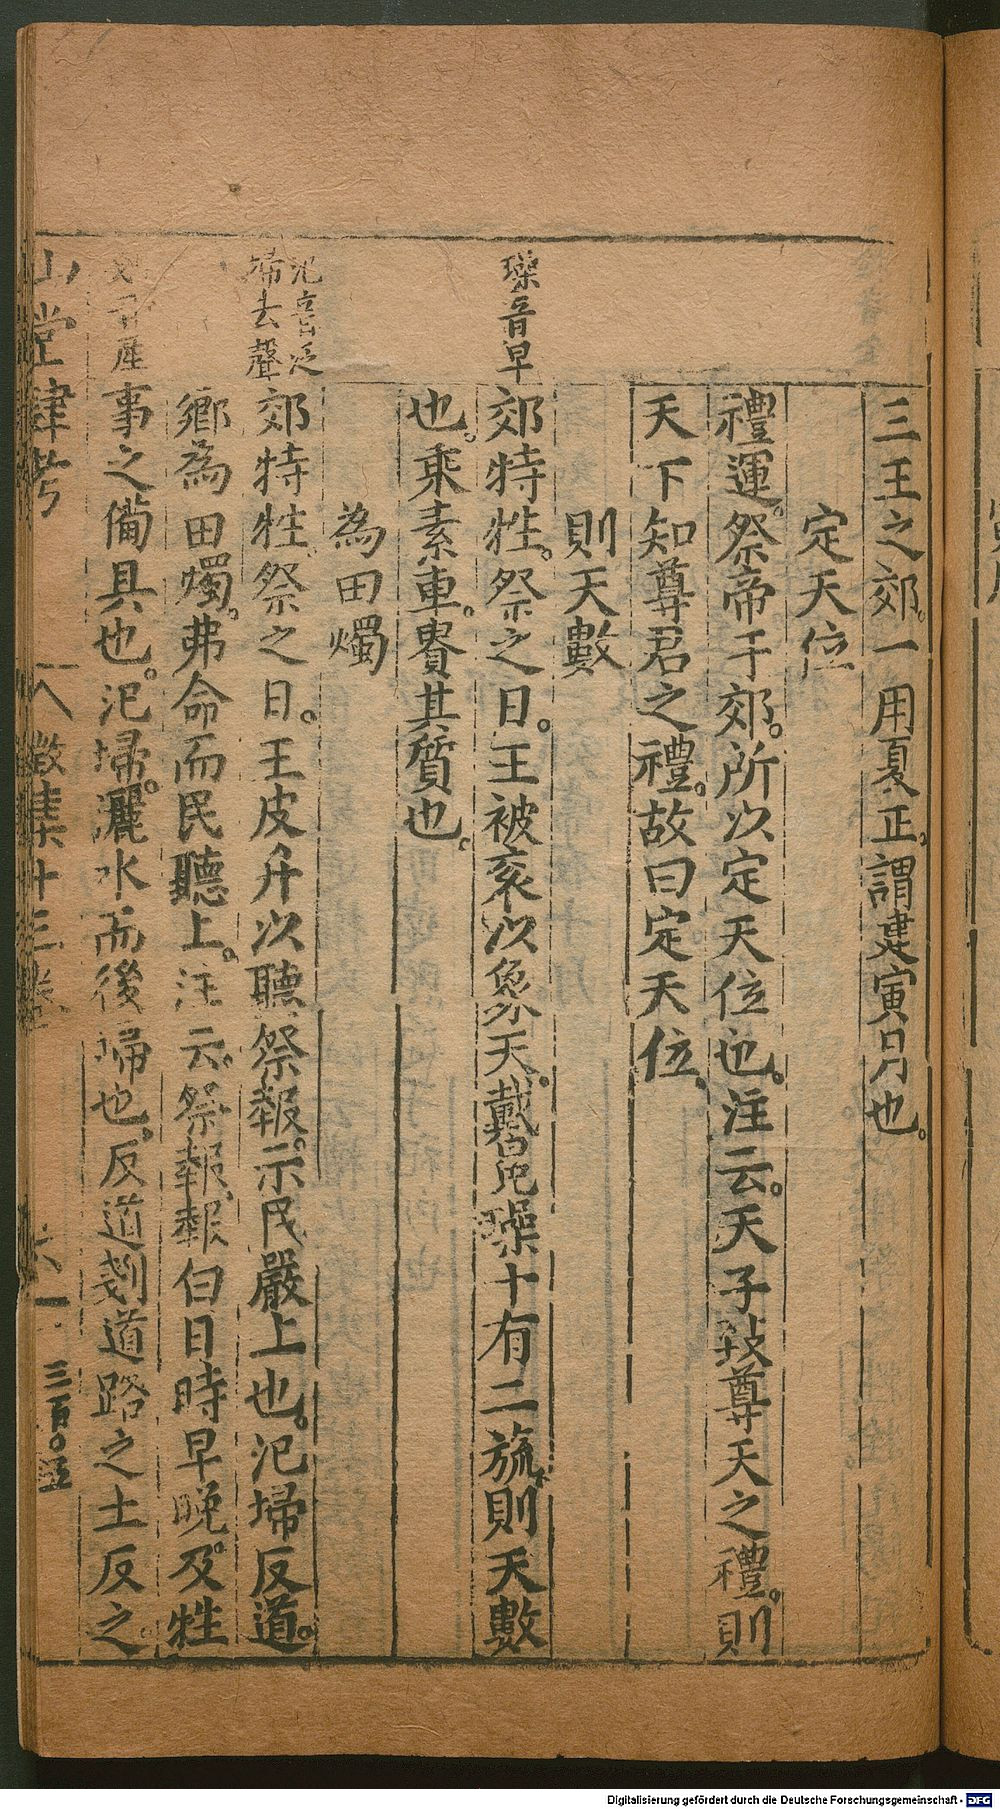 三王之郊。一用夏正。謂建寅月也。
定天位
禮運。祭帝于郊。所以定天位也。注云。天子致尊天之禮。則
天下知尊君之禮。故曰定天位。
則天數
璪音早
郊特牲。祭之日。王被衮以象天。戴冕璪十有二旒。則天數
也。乘素車。貴其質也。
為田燭
氾音泛
埽去聲
郊特牲。祭之日。王皮弁以聽祭報。示民嚴上也。氾埽反道。
鄉為田燭。弗命而民聽上。注云。祭報。報白日時早晚。及牲
事之備具也。氾埽。灑水而後埽也。反道。剗道路之土反之。
剗音產
山堂肆考
八
徵集十三卷
六
三百〇
Digitalisierung gefördert durch die Deutsche Forschungsgemeinschaft - DFG